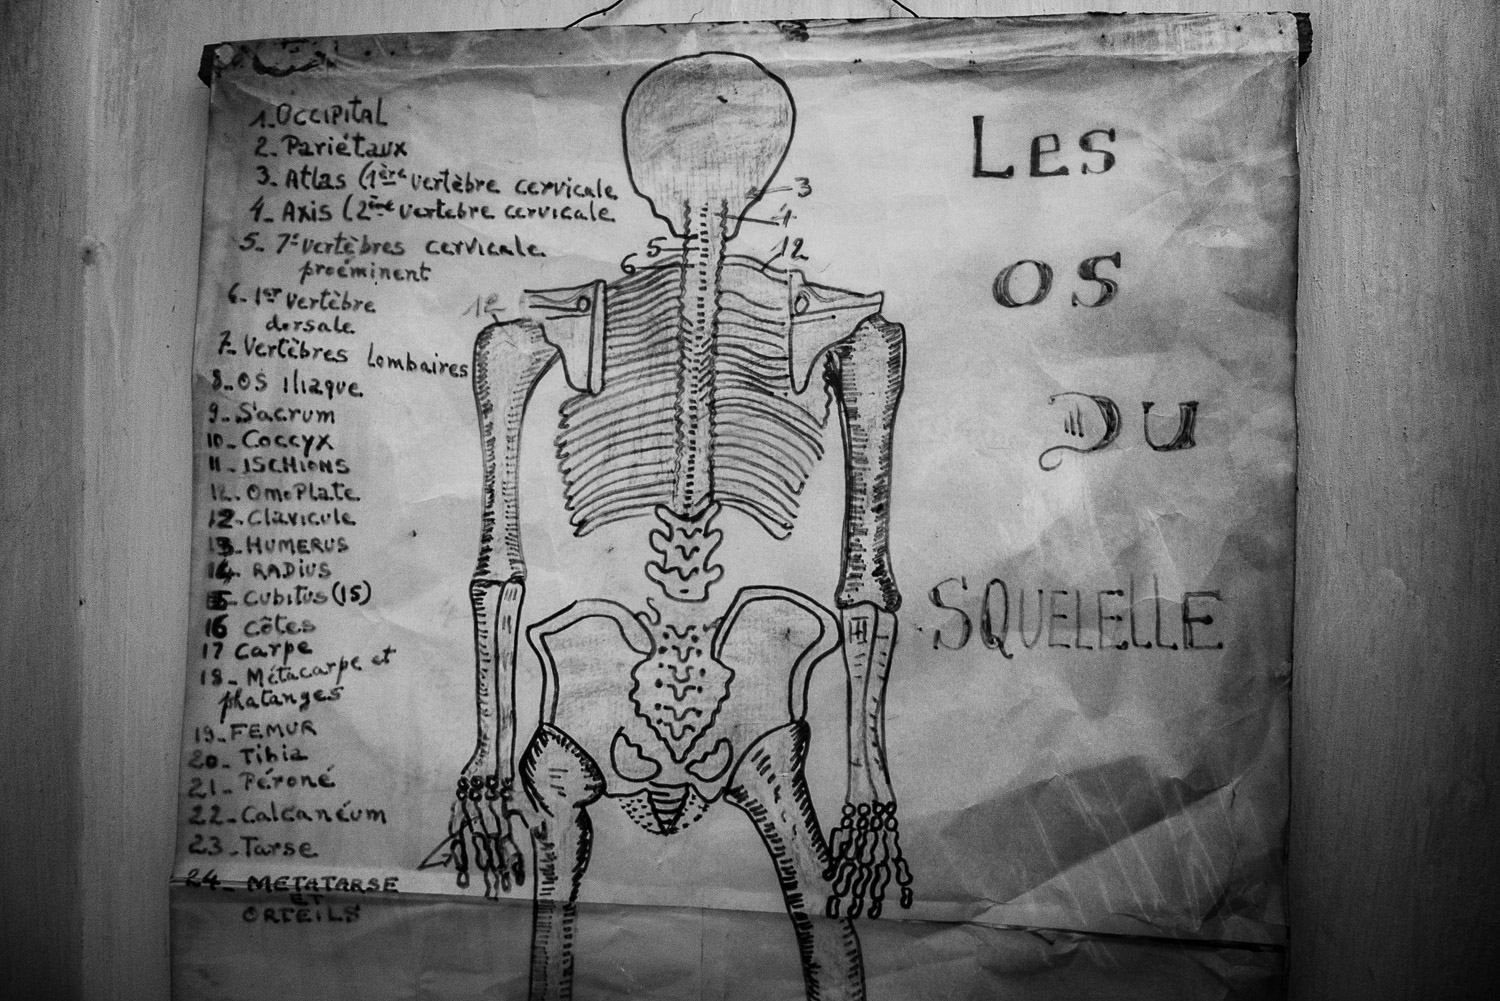 1. OCCIPITAL
2. Pariétaux
3. Atlas (1ère vertèbre cervicale
4. Axis (2ème vertebre cervicale
5. 7e vertèbres cervicale
proéminent
6. 1er vertèbre
dorsale
7. Vertèbres Lombaires
8. OS Iliaque
9. Sacrum
10. Coccyx
11. ISCHIONS
12. OmoPlate
12. Clavicule
13. HUMERUS
14. RADIUS
15. Cubitus (15)
16 Côtes
17 Carpe
18. Métacarpe et
phalanges
19. FEMUR
20. Tibia
21. Péroné
22. Calcanéum
23. Tarse
24. METATARSE
ET
ORTEILS
3
4
5
12
6
12
LES
OS
DU
SQUELELLE